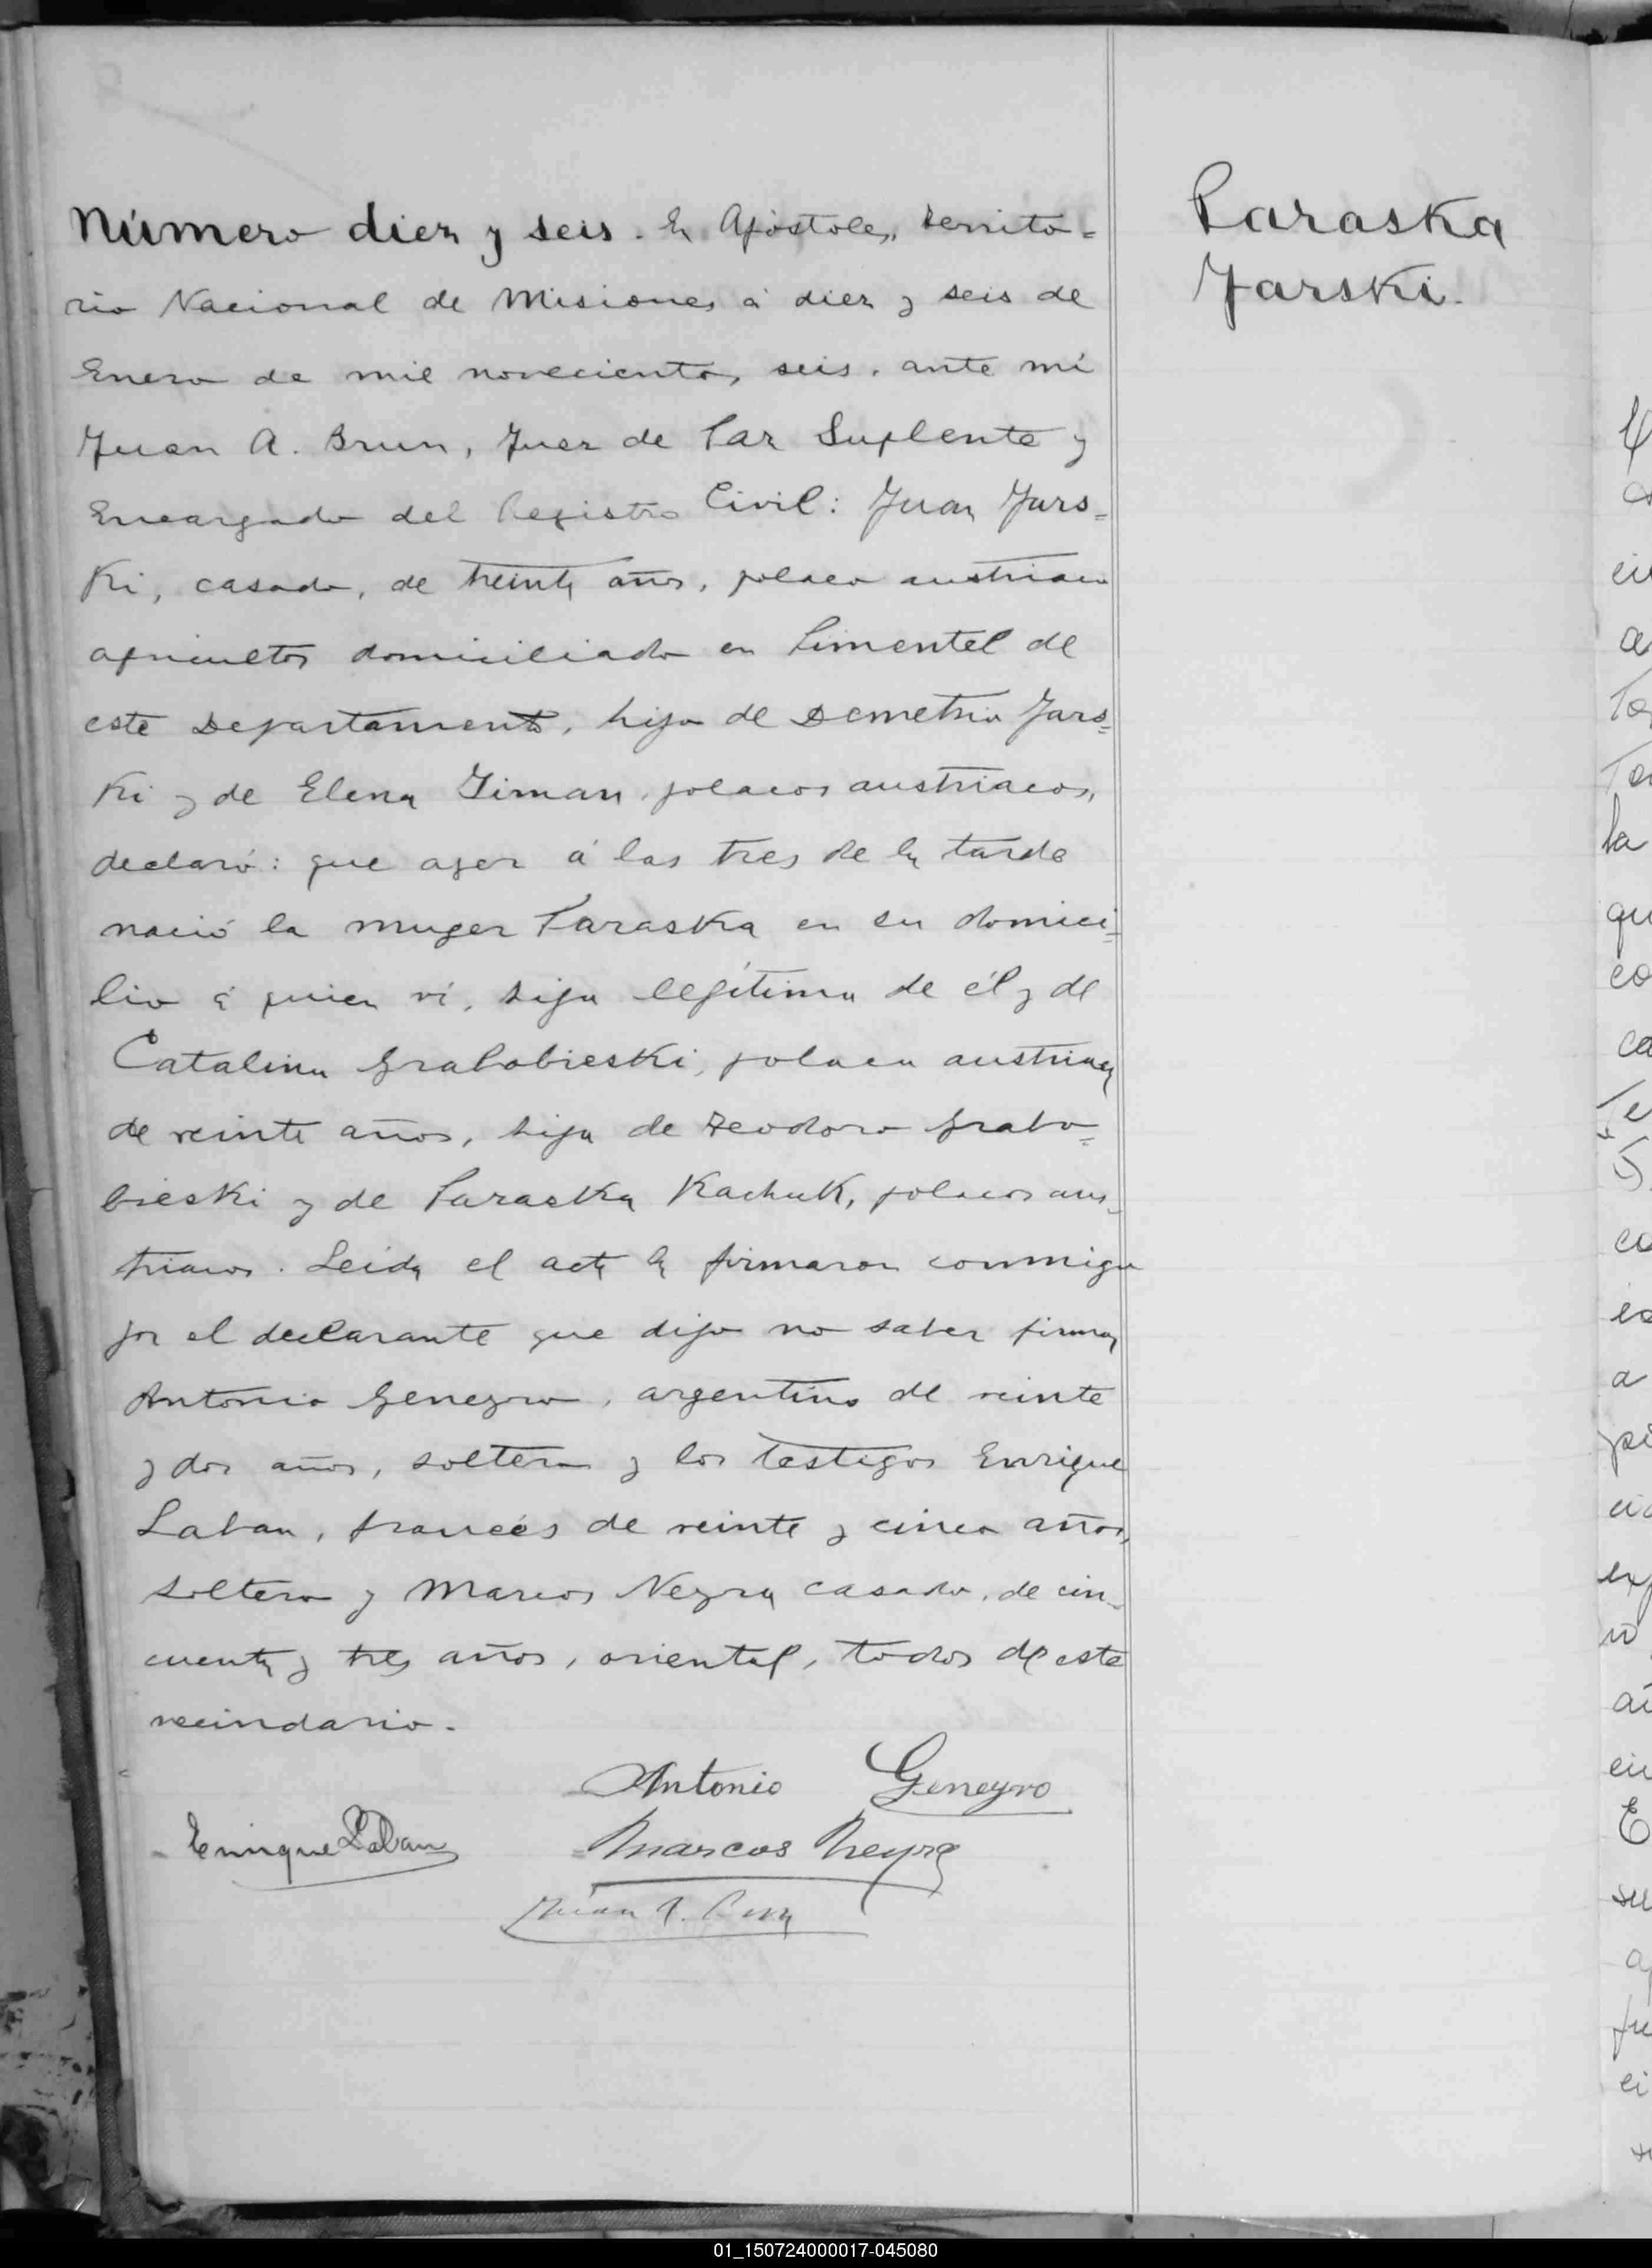 Número diez y seis. En Apóstoles, territo=
rio Nacional de Misiones á diez y seis de
Enero de mil novecientos seis, ante mí
Juan A. Brun, Juez de Paz Suplente y
Encargado del Registro Civil: Juan Jars=
Ki, casado, de treinta años, polaco austriaco
agricultor domiciliado en Pimentel de
este Departamento, hijo de Demetrio Jars=
Ki y de Elena Timan, polacos austriacos,
declaró: que ayer á las tres de la tarde
nació la muger Paraska en su domici=
lio á quien ví, hija legítima de él y de
Catalina Grabobieski, polaca austriaca
de veinte años, hija de Teodoro Grabo=
bieski y de Paraska Kachuk, polacos aus=
triacos. Leida el acta la firmaron conmigo
por el declarante que dijo no saber firmar
Antonio Geneyro, argentino de veinte
y dos años, soltero y los testigos Enrique
Laban, francés de veinte y cinco años,
soltero y Marcos Neyra casado, de cin=
cuenta y tres años, oriental, todos de este
vecindario.
Antonio Geneyro
Enrique Laban Marcos Neyra
Juan A. Brun
Paraska
Jarski.
01_150724000017-045080